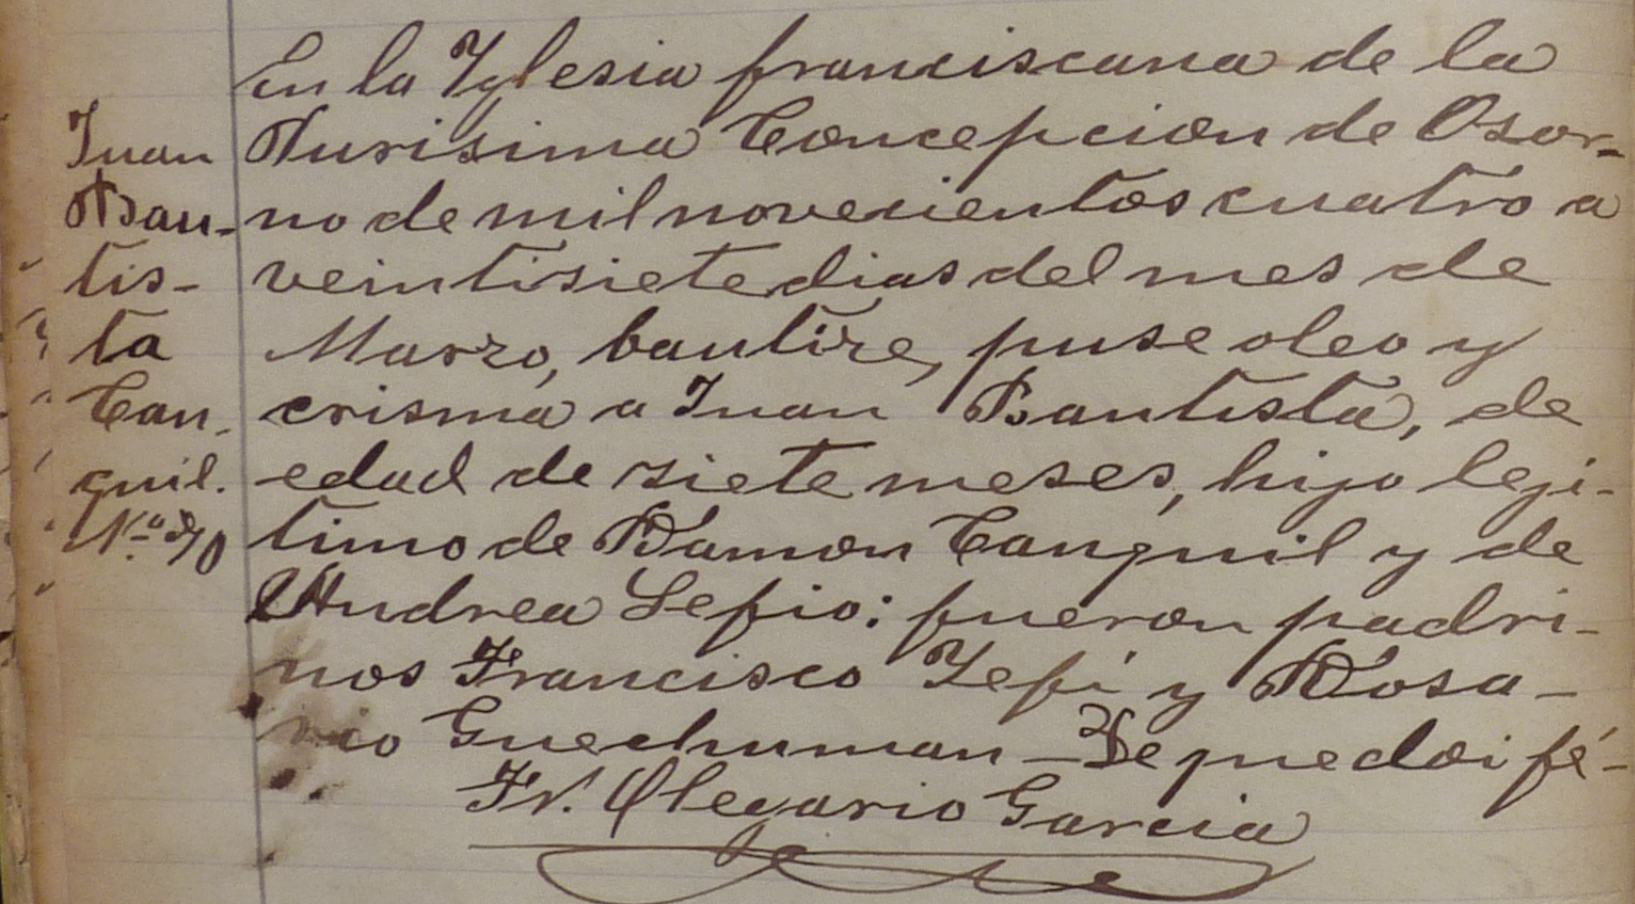 En la Yglesia franciscana de la
Purisima Concepcion de Osor-
no de mil novecientos cuatro a
veintisiete dias del mes de
Marzo, bautize, puse oleo y
crisma a Juan Bautista, de
edad de siete meses, hijo leji-
timo de Ramon Canquil y de
Andrea Lefio: fueron padri-
nos Francisco Lefi y Rosa-
rio Guechuman - De que doi fé-
Fr. Olegario Garcia
Juan
Bau-
tis-
ta
Can-
quil.